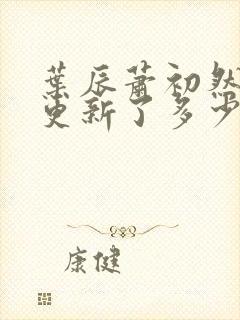 葉辰蕭初然
更新了多少
康健